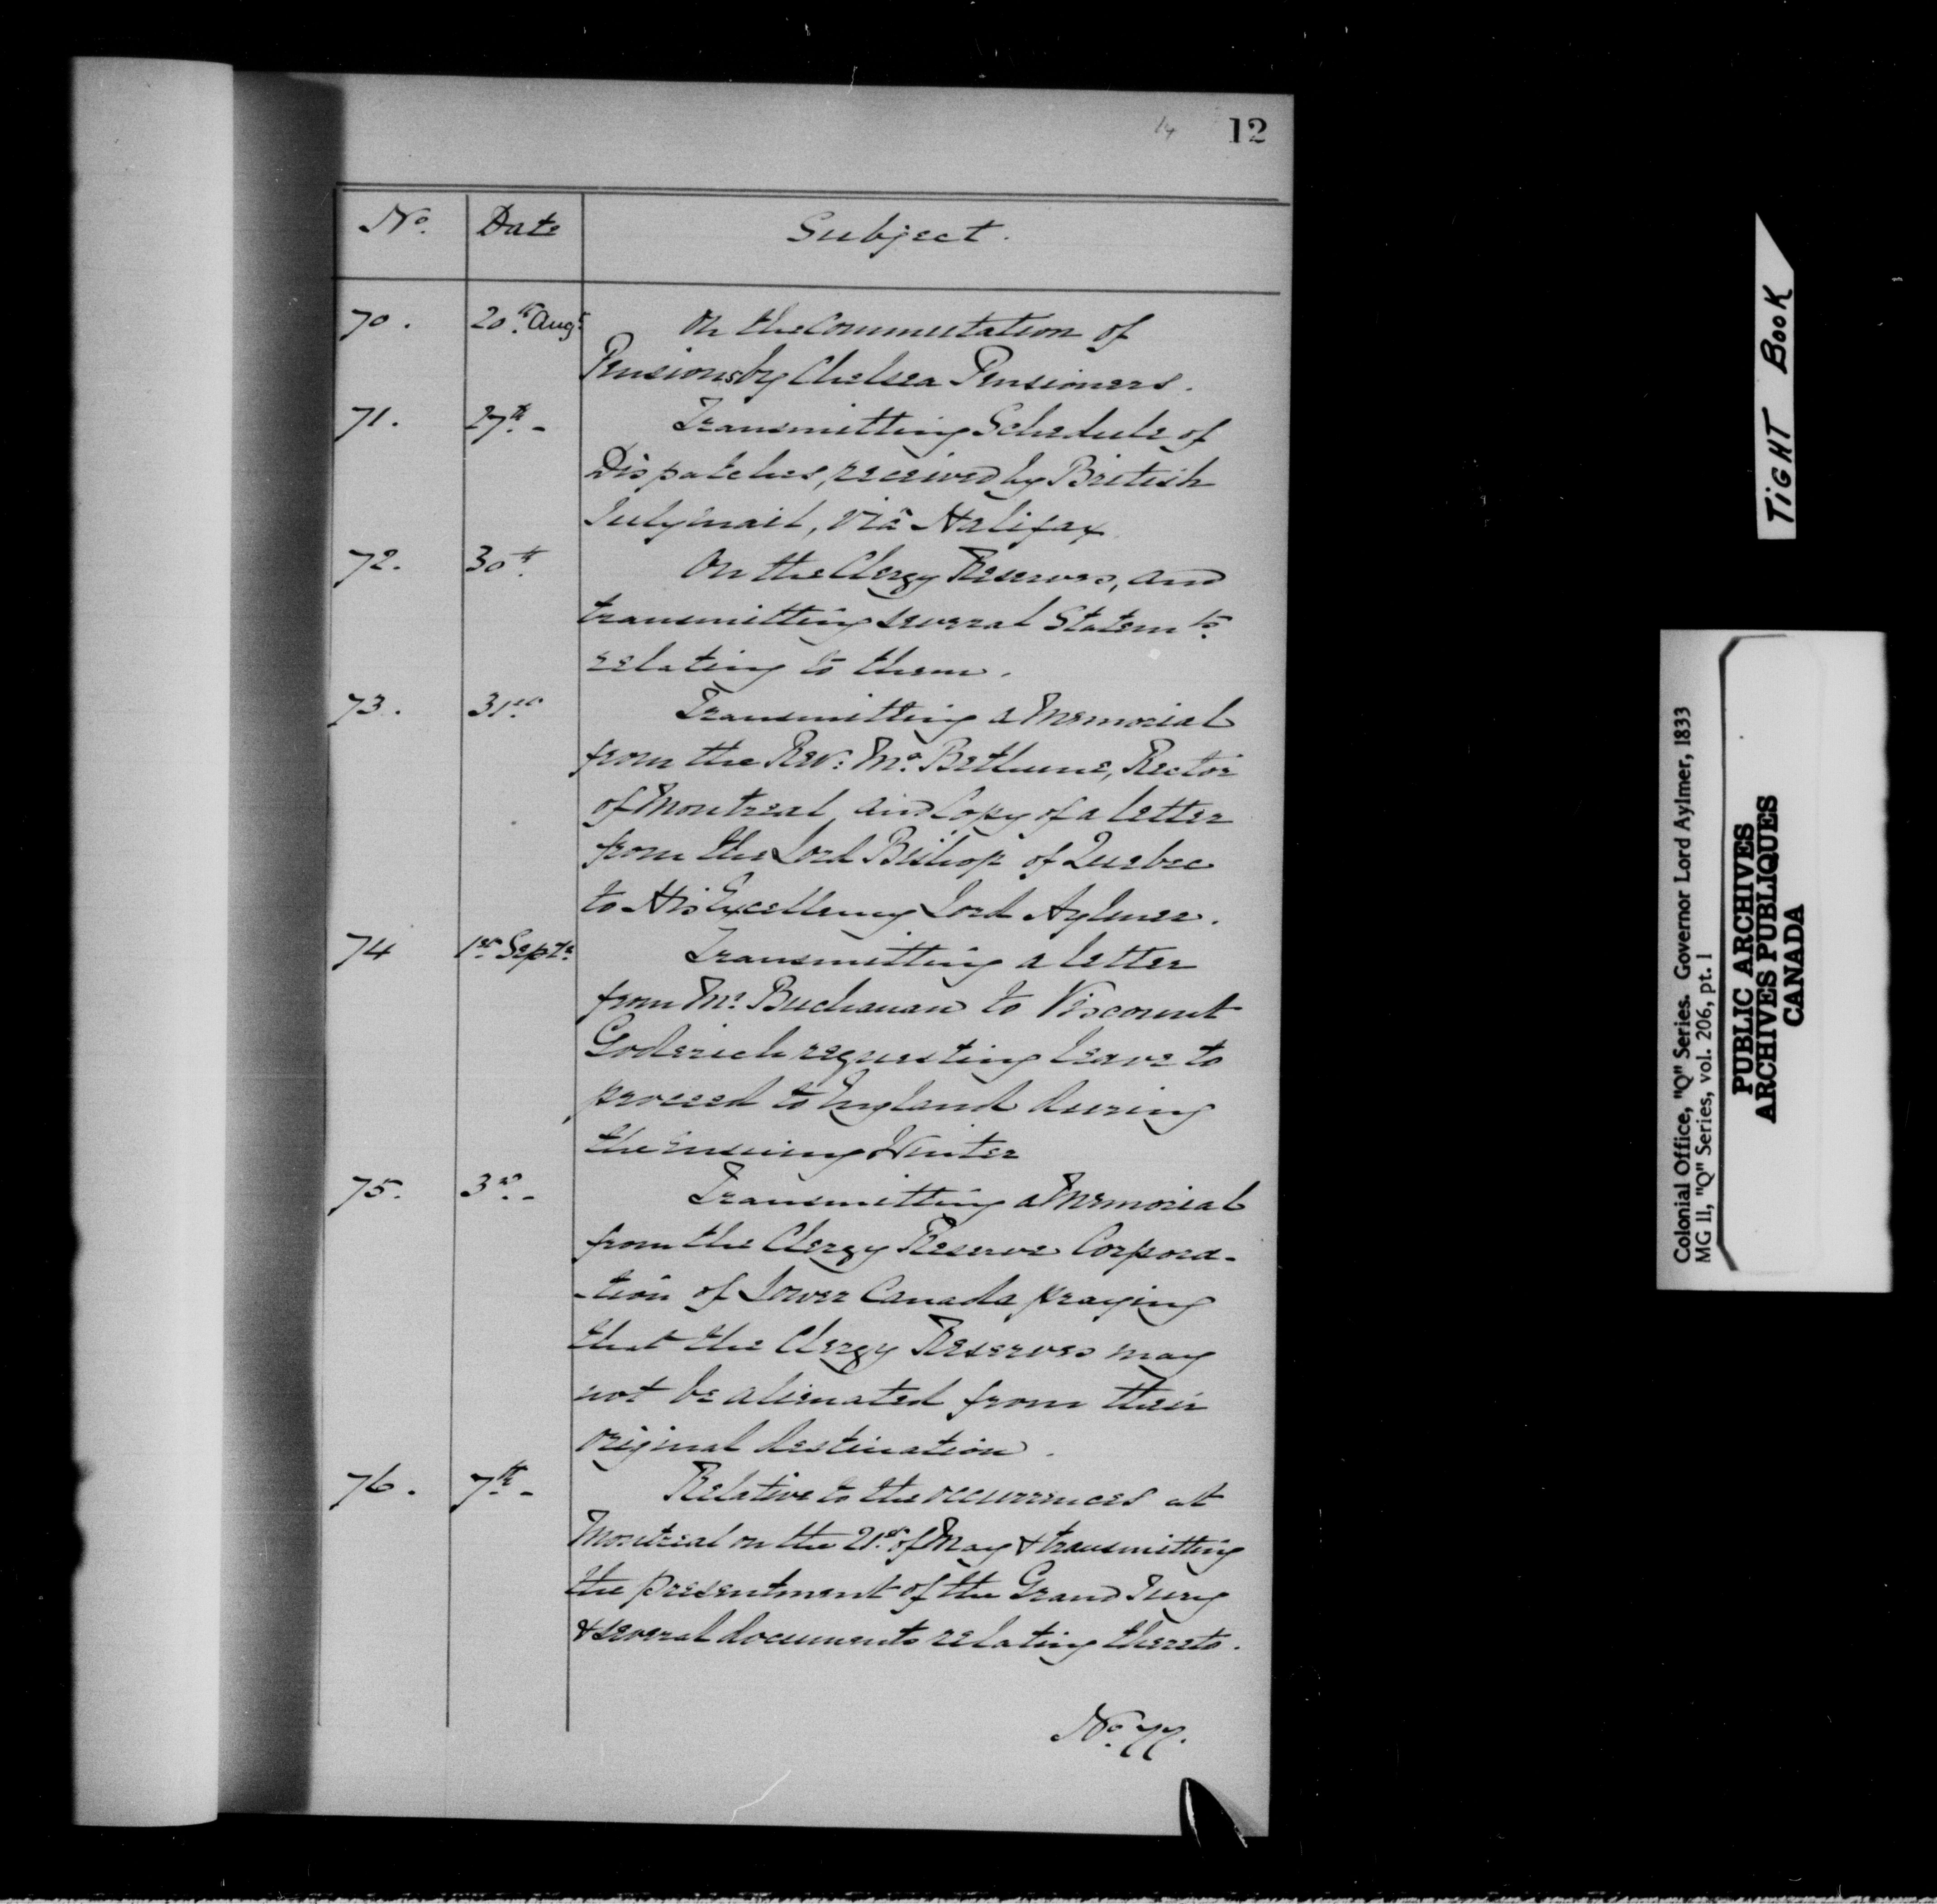 14 12
No. Date Subject.
70. 20th Augt On the Commutation of
Pensions by Chelsea Pensioners.
71. 27th - Transmitting Schedule of
Dispatches, received by British
July mail, viâ Halifax
72. 30th. On the Clergy Reserves, and
transmitting several Statemts
relating to them.
73. 31st. Transmitting a Memorial
from the Revd. Mr. Bethune, Rector
of Montreal, and Copy of a letter
from the Lord Bishop of Quebec
to His Excellency Lord Aylmer.
74 1st Septr. Transmitting a letter
from Mr. Buchanan to Viscount
Goderich requesting leave to
proceed to England during
the ensuing Winter
75. 3rd. - Transmitting a Memorial
from the Clergy Reserve Corpora-
-tion of Lower Canada praying
that the Clergy Reserves may
not be alienated from their
original destination.
76. 7th - Relative to the occurrences at
Montreal on the 21st. of May & transmitting
the presentment of the Grand Jury
& several documents relating thereto.
No. 77.
TiGHT BOOK
Colonial Office, "Q" Series. Governor Lord Aylmer, 1833
MG 11, "Q" Series, vol. 206, pt. 1
PUBLIC ARCHIVES
ARCHIVES PUBLIQUES
CANADA